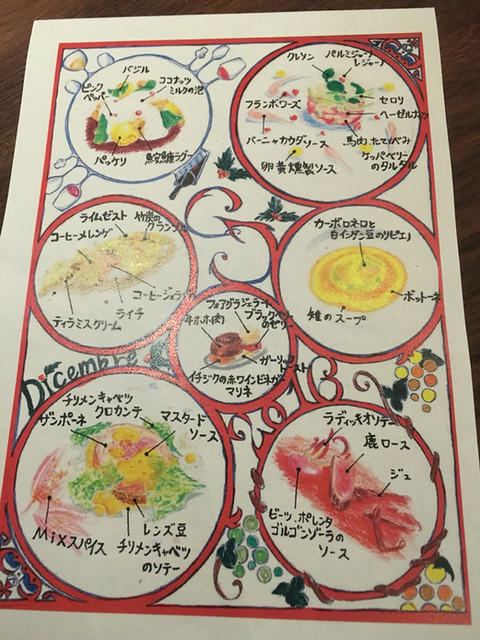 バジル
ココナッツ
ミルクの泡
ピンク
ペッパー
パッケリ
ラグー
クレソン
パルミジャーノ
レジャーノ
フランボワーズ
セロリ
ヘーゼルナッツ
バーニャカウダソース
馬肉、たてがみ
ケッパベリー
のタルタル
卵黄燻製ソース
ライムゼスト
竹炭の
コーヒーメレンゲ
コーヒージェラ
ライチ
ティラミスクリーム
カーボロネロと
白インゲン豆のリピエノ
ボットーネ
雉のスープ
フォアグラジェラート
ブラックベリー
のゼリー
牛ホホ肉
ガーリック
トースト
イチジクの赤ワインビネガー
マリネ
Dicembre
2016
チリメンキャベツ
クロカンテ
ザンポーネ
マスタード
ソース
レンズ豆
チリメンキャベツ
のソテー
Mixスパイス
ラディッキオソテー
鹿ロース
ジュ
ビーツ、ポレンタ
ゴルゴンゾーラの
ソース